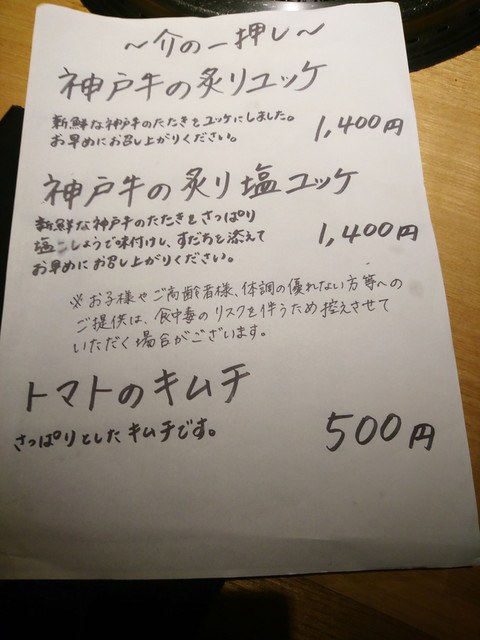 ～介の一押し～
神戸牛の炙りユッケ
新鮮な神戸牛のたたきをユッケにしました。
お早めにお召し上がりください。
1,400円
神戸牛の炙り塩ユッケ
新鮮な神戸牛のたたきをさっぱり
塩こしょうで味付けし、すだちを添えて
お早めにお召し上がりください。
1,400円
※お子様やご高齢者様、体調の優れない方等への
ご提供は、食中毒のリスクを伴うため控えさせて
いただく場合がございます。
トマトのキムチ
さっぱりとしたキムチです。
500円